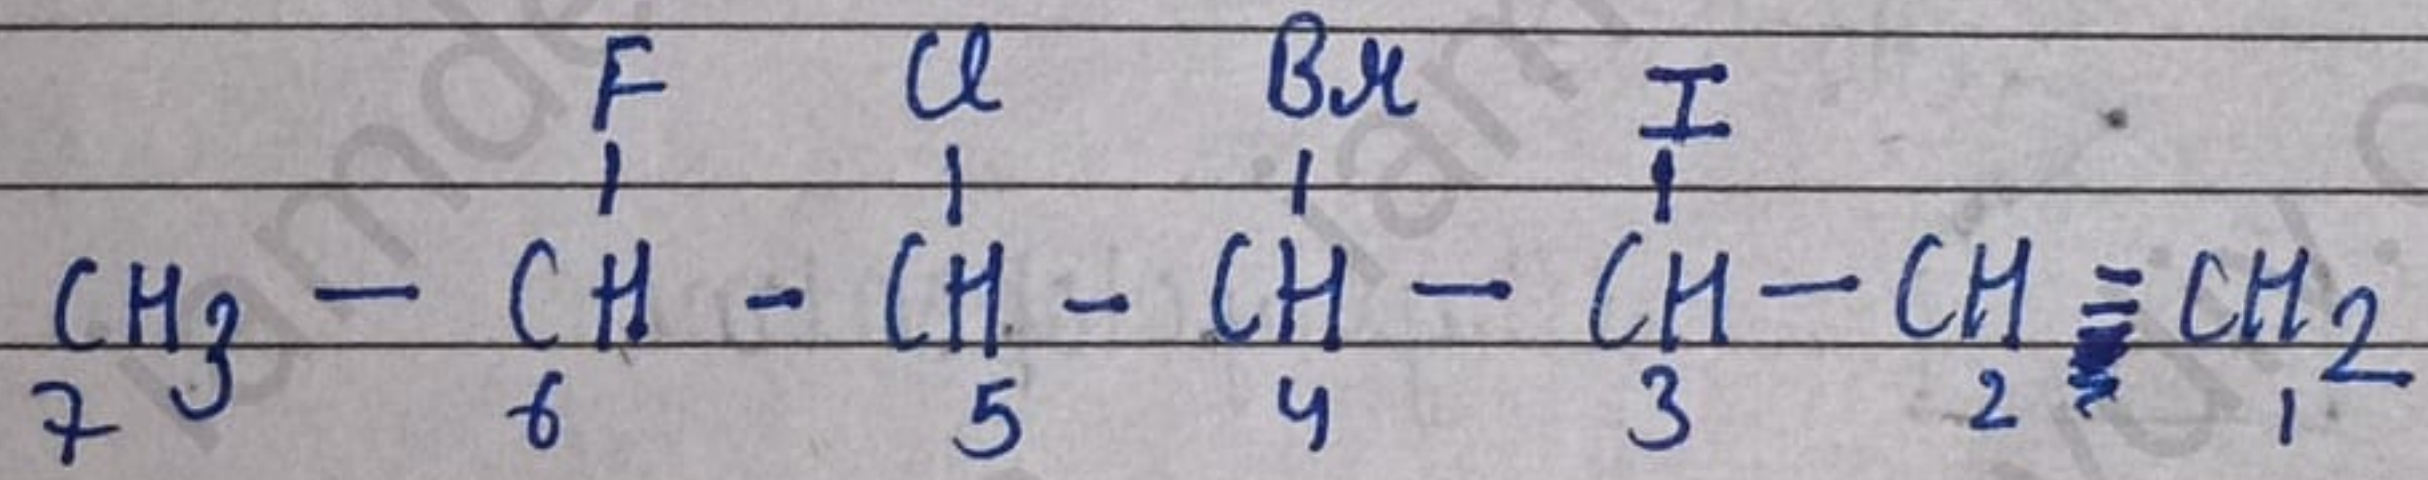 F Cl Br I
CH3 — CH - CH - CH — CH — CH = CH2
7 6 5 4 3 2 1